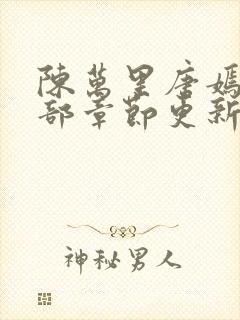 陳萬里唐嫣
部章節更新
神秘男人